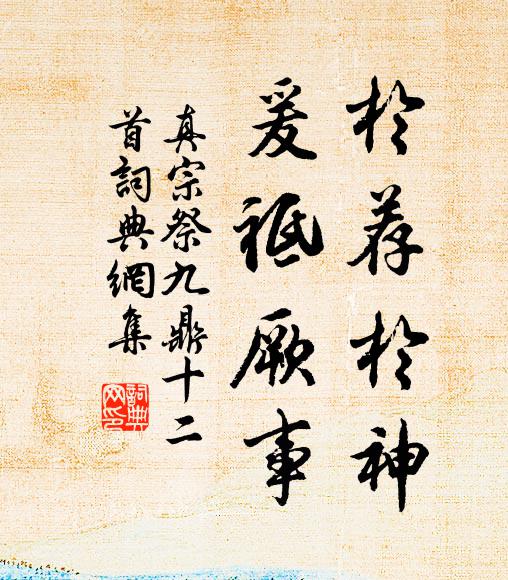 於荐於神
爰祗厥事
真宗祭九鼎十二
首詞典網集
詞典網印